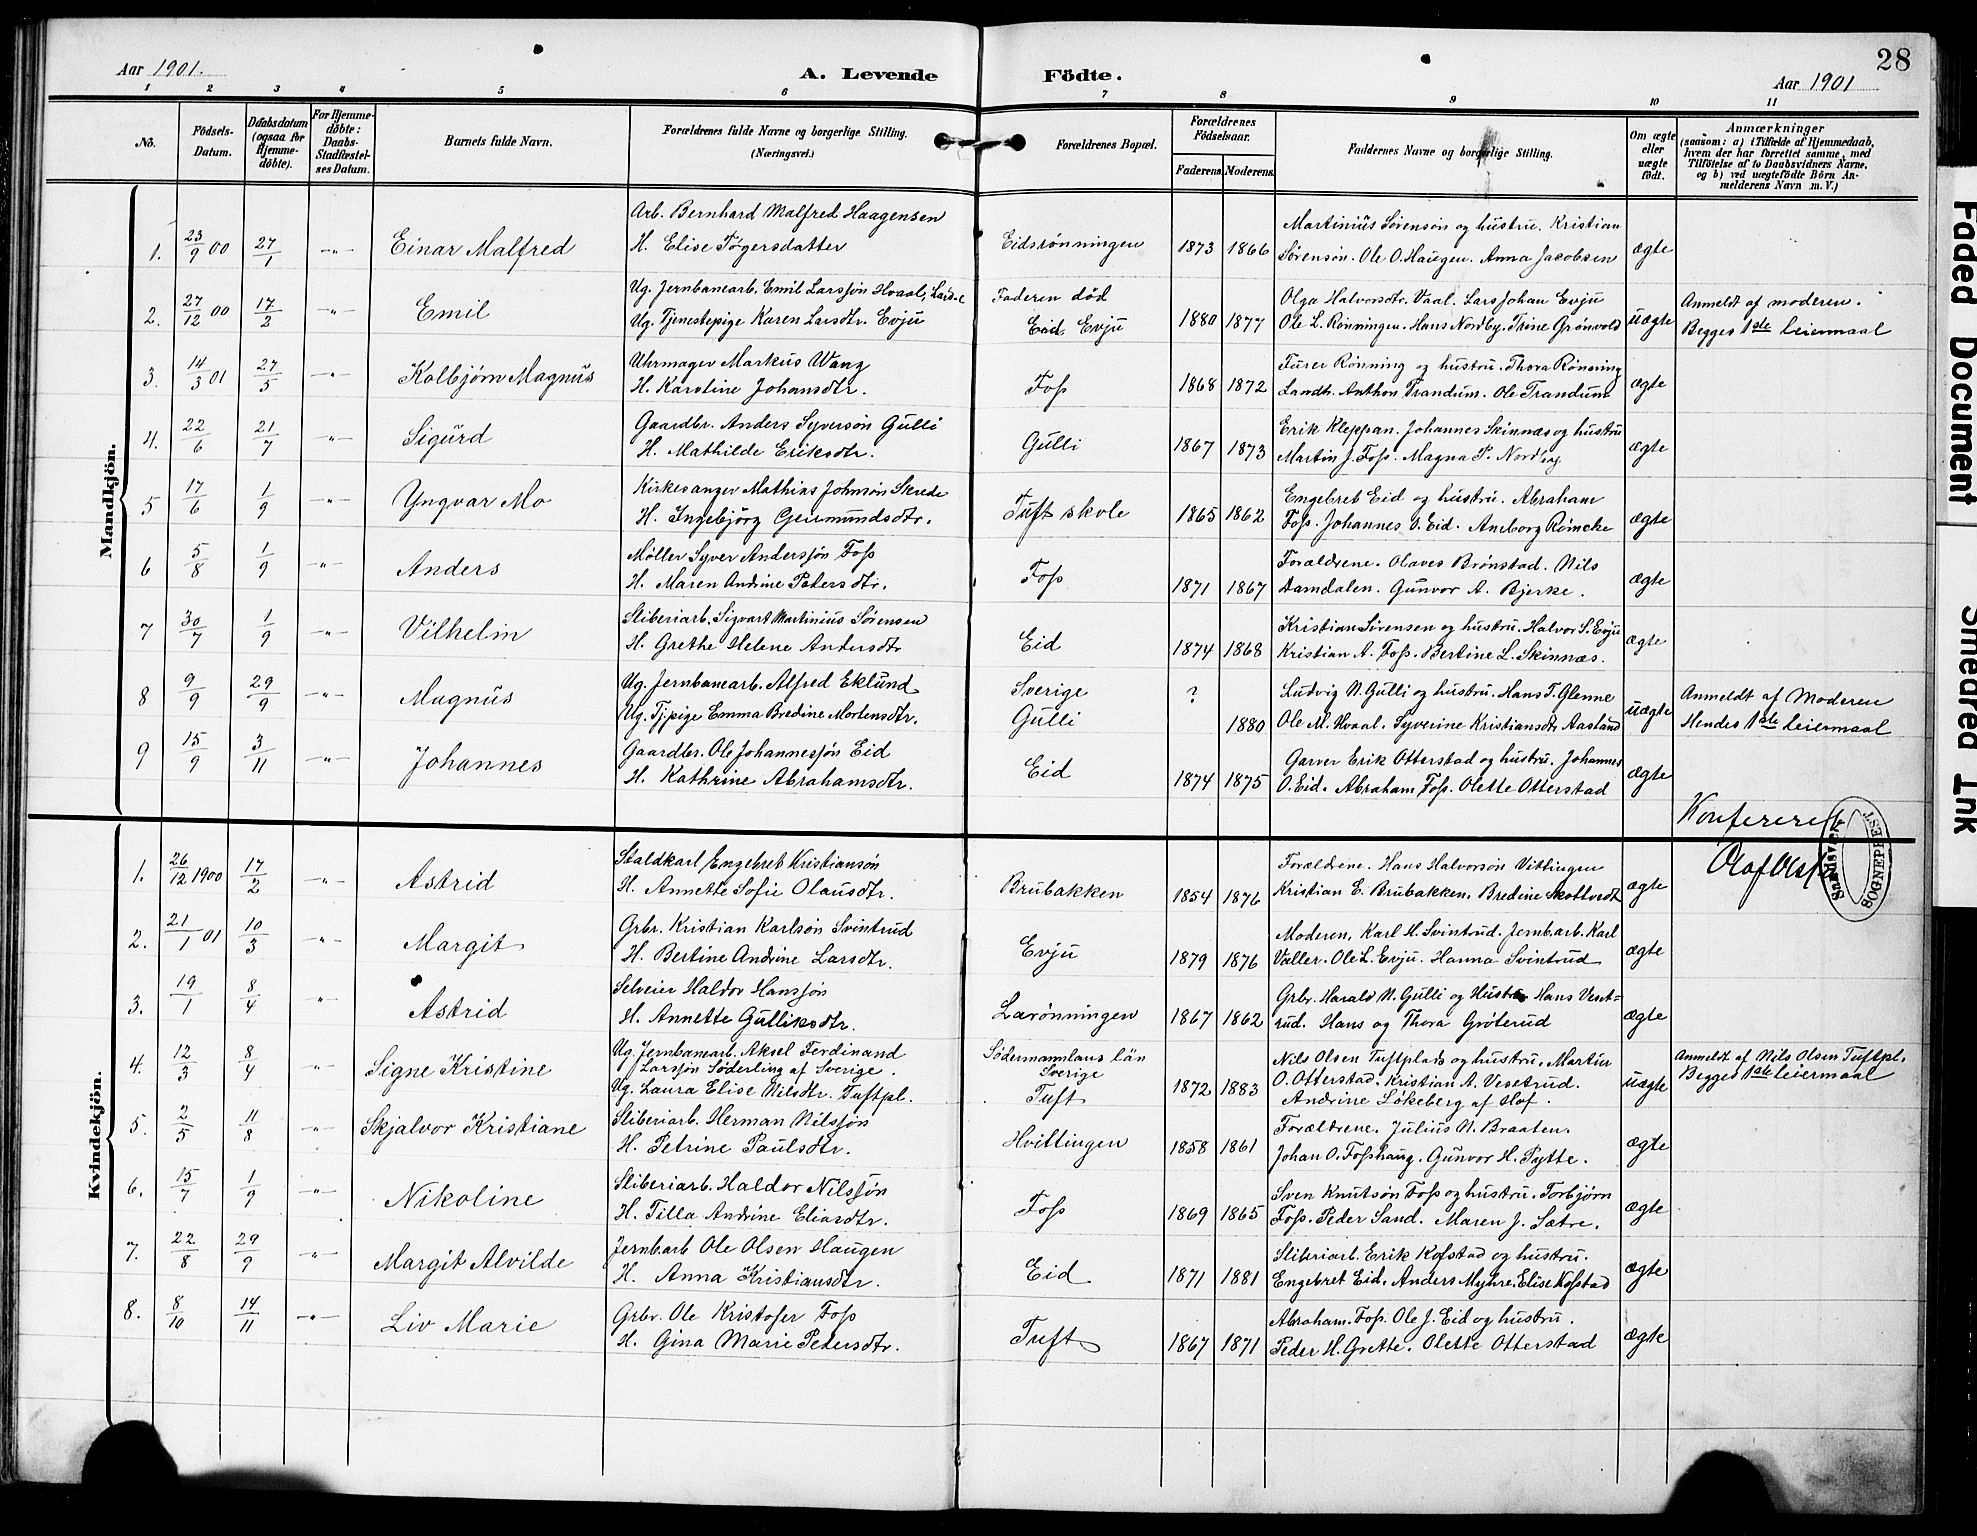 28
Aar 1901.
A. Levende Födte.
Aar 1901
1 2 3 4 5 6 7 8 9 10 11
No.
Födsels-Datum.
Daabsdatum (ogsaa for Hjemme-döbte).
For Hjemme-döbte: Daabs-Stadfæstel-ses Datum.
Barnets fulde Navn.
Forældrenes fulde Navne og borgerlige Stilling.
(Næringsvei.)
Forældrenes Bopæl.
Forældrenes Födselsaar.
Faderens. Moderens.
Faddernes Navne og borgerlige Stilling.
Om ægte eller uægte födt.
Anmærkninger
(saasom: a) i Tilfælde af Hjemmedaab,
hvem der har forrettet samme, med
Tilföielse af to Daabsvidners Navne,
og b) ved uægtefödte Börn An-
melderens Navn m. V.)
Mandkjön.
Arb. Bernhard Malfred Haagensen
1. 23/9 00 27/1 -"- Einar Malfred H. Elise Tøgersdatter Eidsrønningen 1873 1866 ægte
Martinius Sørensøn og hustru. Kristian
Sørensøn. Ole O. Haugen. Anna Jacobsen
Ug. Jernbanearb. Emil Larssøn Hvaal,
2. 27/12 00 17/2 -"- Emil Ug. Tjenestepige Karen Larsdtr. Evju
Faderen død
Eid Evju 1880 1877
Olga Halvorsdtr. Vaal. Lars Johan Evju
Ole L. Rønningen. Hans Nordby. Trine Grønvold uægte
Anmeldt af moderen.
Begges 1ste leiermaal
Uhrmager Markus Wang
3. 14/3 01 27/5 -"- Kolbjørn Magnus H. Karoline Johansdtr. Foss 1868 1872
Furer Rønning og hustru. Thora Rønning
Landh. Anthon Trandum. Ole Trandum ægte
Gaardbr. Anders Syversøn Gulli
4. 22/6 21/7 -"- Sigurd H. Mathilde Eriksdtr. Gulli 1867 1873
Erik Kleppan. Johannes Skinnæs og hustru
Martin J. Foss. Magna P. Nordby ægte
Kirkesanger Mathias Johnsøn Skrede
5 17/6 1/9 -"- Yngvar Mo H. Ingebjörg Geirmundsdtr. Tuft skole 1865 1862
Engebret Eid og hustru. Abraham
Foss. Johannes O. Eid. Anborg Römcke ægte
Møller Syver Anderssøn Foss
6 5/8 1/9 -"- Anders H. Maren Andrine Petersdtr. Foss 1871 1867
Forældrene. Olaves Brønstad. Nils
Damdalen. Gunvor A. Bjerke. ægte
Sliberiarb. Sigvart Martinius Sørensen
7 30/7 1/9 -"- Vilhelm H. Grethe Helene Andersdtr Eid 1874 1868
Kristian Sørensen og hustru. Halvor S. Evju
Kristian A. Foss. Bertine L. Skinnæs. ægte
Ug. Jernbanearb. Alfred Eklund
8 9/9 29/9 -"- Magnus Ug. Tj.pige Emma Bredine Mortensdtr.
Sverige ?
Gulli 1880
Ludvig N. Gulli og hustru. Hans T. Glenne
Ole M. Hvaal. Syverine Kristiansdtr Aasland uægte
Anmeldt af Moderen
Hendes 1ste leiermaal
Gaardbr. Ole Johannessøn Eid
9 15/9 3/11 -"- Johannes H. Kathrine Abrahamsdtr. Eid 1874 1875
Garver Erik Otterstad og hustru. Johannes
O. Eid. Abraham Foss. Olette Otterstad ægte
Konfereret
Olaf Olsf
Sandsvær SOGNEPREST.
Kvindekjön.
Staldkarl Engebret Kristiansøn
1. 26/12 1900 17/2 -"- Astrid H. Annette Sofie Olausdtr. Brubakken 1854 1876
Forældrene. Hans Halvorsøn Vittingen
Kristian E. Brubakken. Bredine Skollerdt ægte
Grbr. Kristian Karlsøn Svintrud
2. 21/1 01 10/3 -"- Margit H. Bertine Andrine Larsdtr. Evju 1879 1876
Moderen. Karl H. Svintrud. Jernb.arb. Karl
Væller. Ole L. Evju. Hanna Svintrud ægte
Selveier Haldor Hanssøn
3. 19/1 8/4 -"- Astrid H. Annette Gulliksdtr. Lærønningen 1867 1862
Grbr. Harald N. Gulli og Hustru Hans Vest=
rud. Hans og Thora Grøterud ægte
Ug. Jernbanearb. Aksel Ferdinand
Larssøn Söderling af Sverige.
4. 12/3 8/4 -"- Signe Kristine Ug. Laura Elise Nilsdtr. Tuftpl.
Södermannlans län
Sverige
Tuft 1872 1883
Nils Olsen Tuftplads og hustru. Martin
O. Otterstad. Kristian A. Vesetrud.
Andrine Løkeberg af Hof. uægte
Anmeldt af Nils Olsen Tuftpl.
Begges 1ste leiermaal
Sliberiarb. Herman Nilssøn
5. 2/5 11/8 -"- Skjalvor Kristiane H. Petrine Paulsdtr. Hvittingen 1858 1861
Forældrene. Julius N. Braaten.
Johan O. Fosshaug. Gunvor H. Pytte. ægte
Sliberiarb. Haldor Nilssøn
6. 15/7 1/9 -"- Nikoline H. Tilla Andrine Eliasdtr. Foss 1869 1865
Sven Knutsøn Foss og hustru. Torbjörn
Foss. Peder Sand. Maren J. Sætre. ægte
Jernb.arb Ole Olsen Haugen
7. 22/8 29/9 -"- Margit Alvilde H. Anna Kristiansdtr. Eid 1871 1881
Sliberiarb. Erik Kofstad og hustru.
Engebret Eid. Anders Myhre. Elise Kofstad ægte
Grbr. Ole Kristofer Foss
8. 8/10 14/11 -"- Liv Marie H. Gina Marie Petersdtr. Tuft 1867 1871
Abraham Foss. Ole J. Eid og hustru.
Peder H. Grette. Olette Otterstad ægte
Faded Document
Smeared Ink